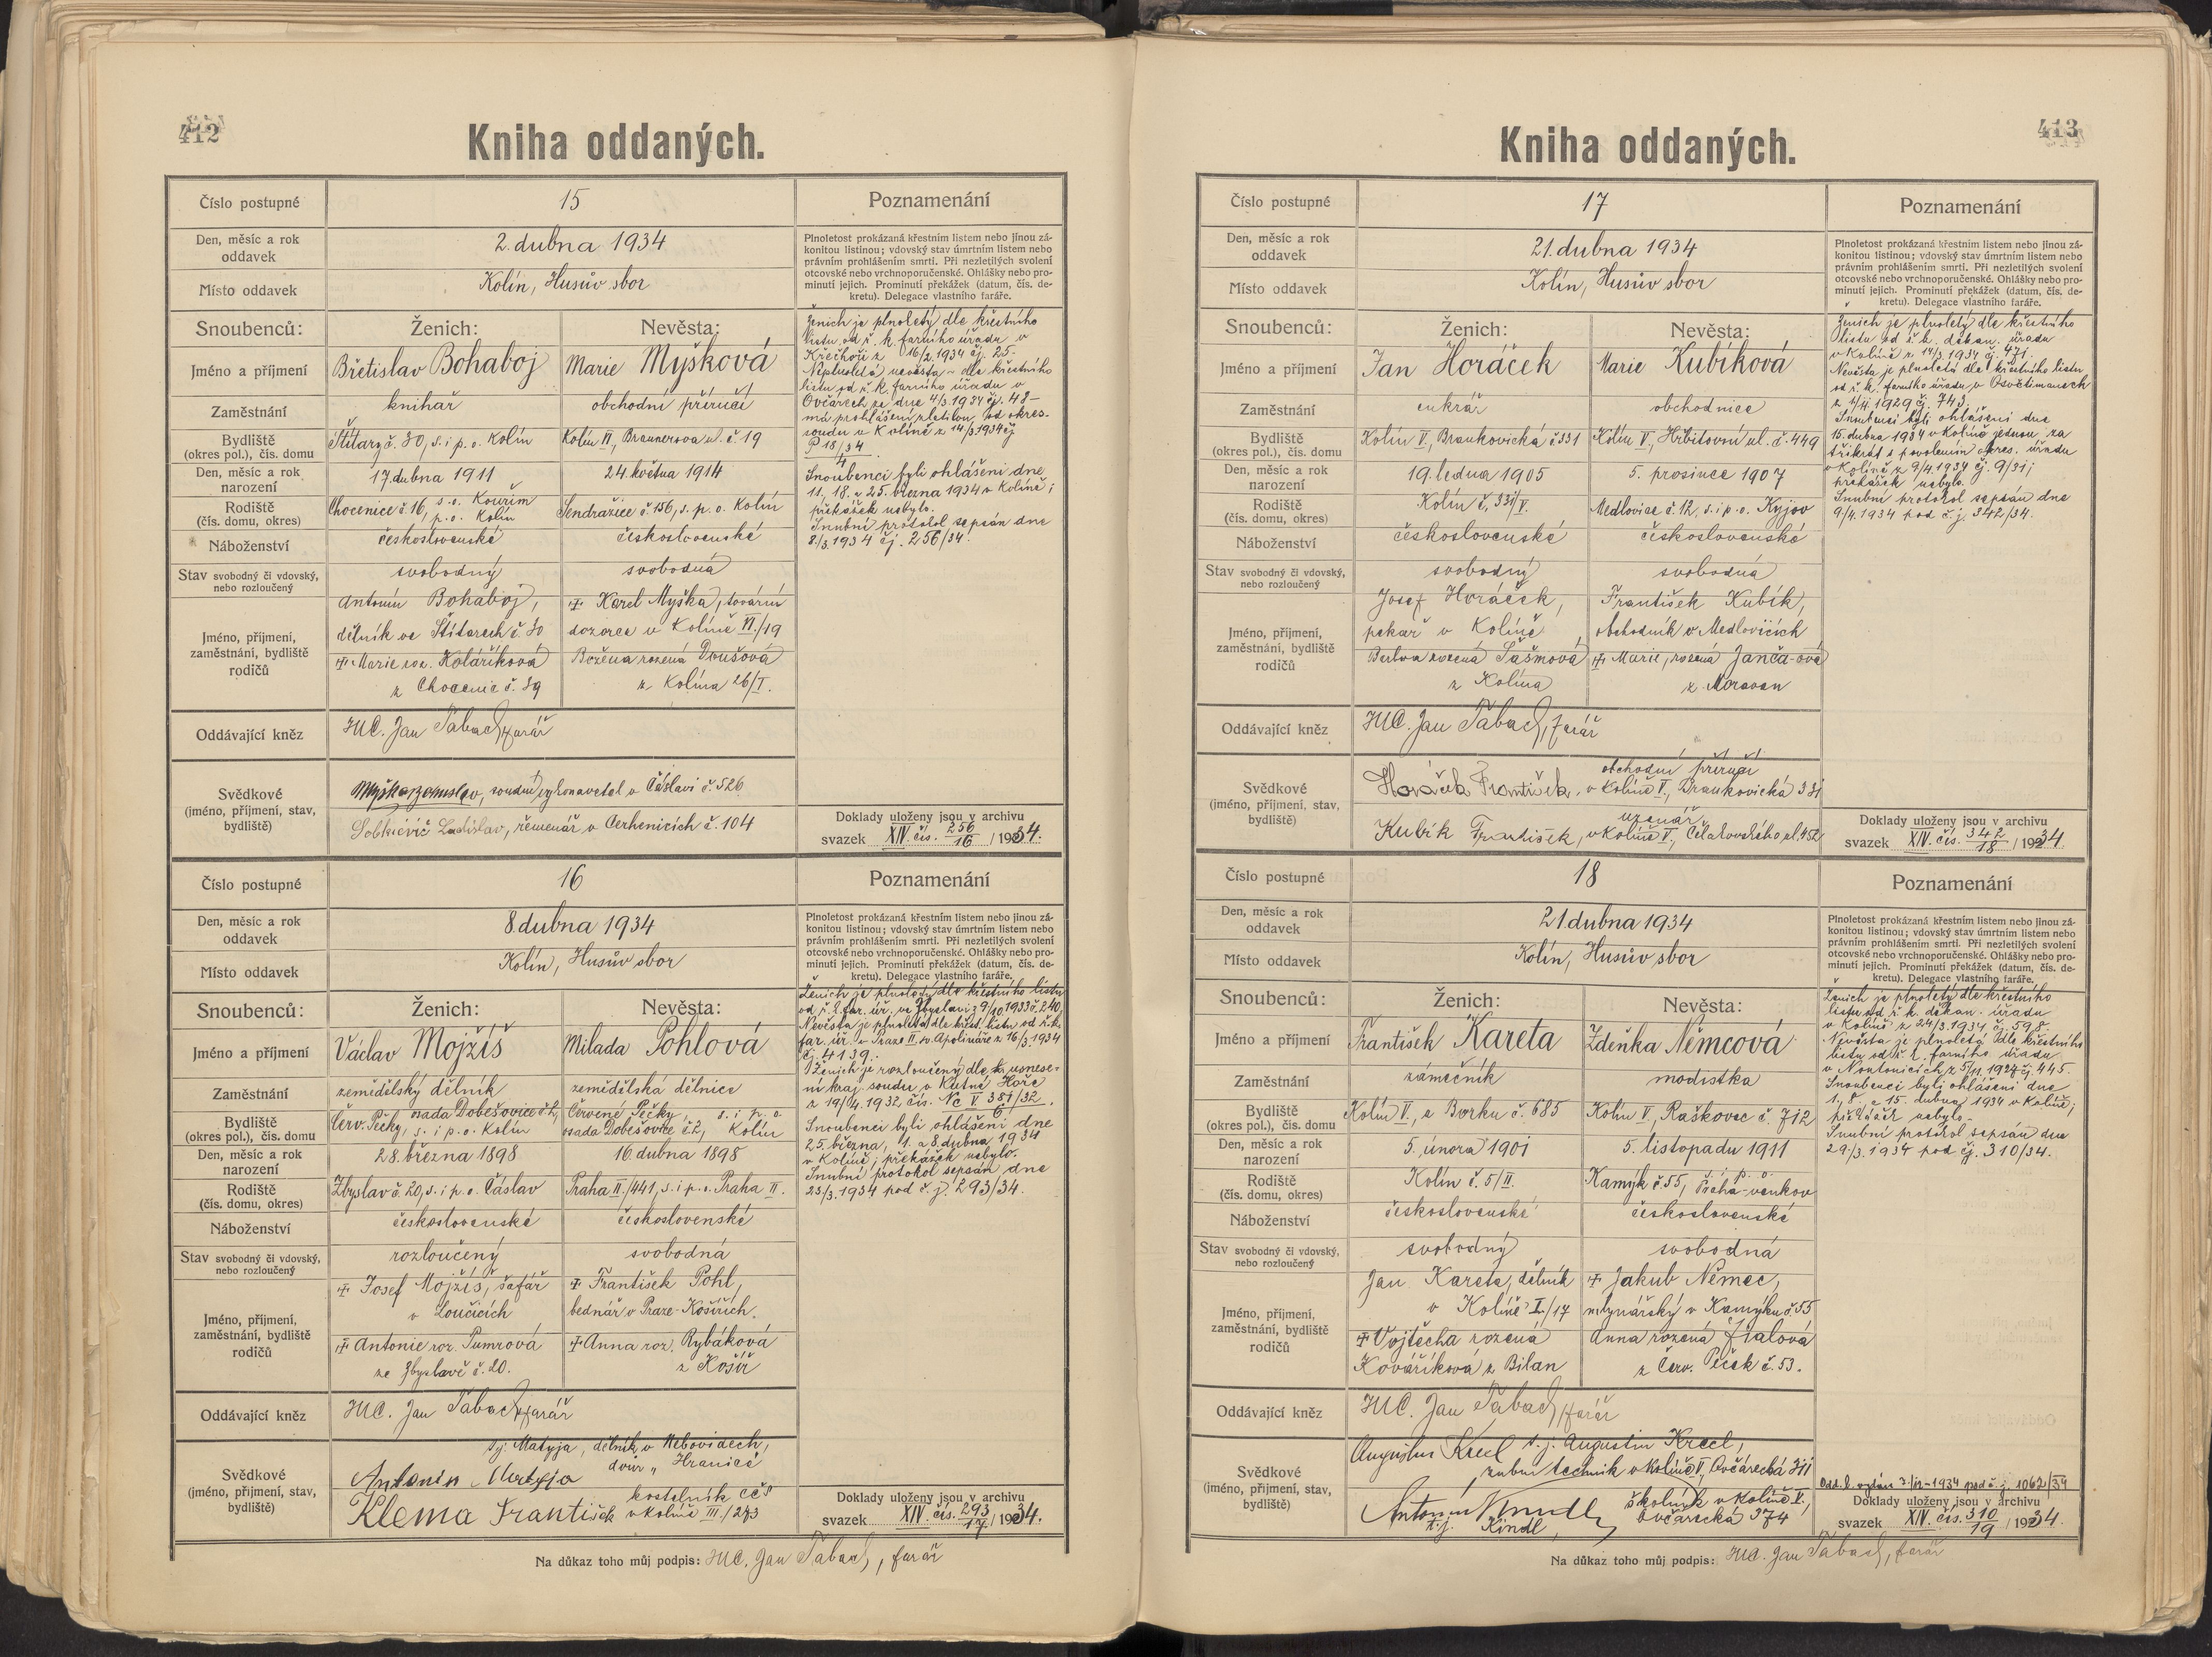 412
Kniha oddaných.
Číslo postupné
15
Poznamenání
Den, měsíc a rok
oddavek
2. dubna 1934
Místo oddavek
Kolín, Husův sbor
Plnoletost prokázaná křestním listem nebo jinou zá-
konitou listinou; vdovský stav úmrtním listem nebo
právním prohlášením smrti. Při nezletilých svolení
otcovské nebo vrchnoporučenské. Ohlášky nebo pro-
minutí jejich. Prominutí překážek (datum, čís. de-
kretu). Delegace vlastního faráře.
Snoubenců: Ženich: Nevěsta:
Jméno a příjmení
Břetislav Bohaboj
Marie Myšková
Zaměstnání
knihař
obchodní příručí
Bydliště
(okres pol.), čís. domu
Štítary č. 30, s. i p. o. Kolín
Kolín II, Braunerova ul. č. 19
Den, měsíc a rok
narození
17. dubna 1911
24. května 1914
Rodiště
(čís. domu, okres)
Chocenice č. 16, s. o. Kouřim
p. o. Kolín
Sendražice č. 156, s. p. o. Kolín
Náboženství
československé
československé
Stav svobodný či vdovský,
nebo rozloučený
svobodný
svobodná
Jméno, příjmení,
zaměstnání, bydliště
rodičů
Antonín Bohaboj,
dělník ve Štítarech č. 30
Marie roz. Kolaříková
z Chocenic č. 39
Karel Myška, tovární
dozorce v Kolíně VI./19
Božena rozená Doušová
z Kolína 26/I.
Oddávající kněz
JUC. Jan Tabach, farář
Svědkové
(jméno, příjmení, stav,
bydliště)
soudní vykonavatel v Čáslavi č. 526
Ladislav, řemenář v Cerhenicích č. 104
Ženich je plnoletý dle křestního
listu od ř. k. farního úřadu v
Křečhoři z 16/2. 1934 čj. 25.
Neplnoletá nevěsta – dle křestního
listu od ř. k. farního úřadu v
Ovčárech ze dne 4/3. 1934 čj. 48 –
má prohlášení zletilou od okres.
soudu v Kolíně z 14/3. 1934 čj
P 18/34
4
Snoubenci byli ohlášeni dne
11., 18. a 25. března 1934 v Kolíně;
překážek nebylo.
Snubní protokol sepsán dne
8./3. 1934 čj. 256/34.
Doklady uloženy jsou v archivu
svazek XIV. čís. 256/16 / 1934.
Číslo postupné
16
Poznamenání
Den, měsíc a rok
oddavek
8. dubna 1934
Místo oddavek
Kolín, Husův sbor
Plnoletost prokázaná křestním listem nebo jinou zá-
konitou listinou; vdovský stav úmrtním listem nebo
právním prohlášením smrti. Při nezletilých svolení
otcovské nebo vrchnoporučenské. Ohlášky nebo pro-
minutí jejich. Prominutí překážek (datum, čís. de-
kretu). Delegace vlastního faráře.
Snoubenců: Ženich: Nevěsta:
Jméno a příjmení
Václav Mojžíš
Milada Pohlová
Zaměstnání
zemědělský dělník
zemědělská dělnice
Bydliště
(okres pol.), čís. domu
Červ. Pečky, osada Dobešovice č. 2,
s. i p. o. Kolín
Červené Pečky, s. i p. o.
osada Dobešovice č. 2, Kolín
Den, měsíc a rok
narození
28. března 1898
16. dubna 1898
Rodiště
(čís. domu, okres)
Zbyslav č. 20, s. i p. o. Čáslav
Praha II./441, s. i p. o. Praha II.
Náboženství
československé
československé
Stav svobodný či vdovský,
nebo rozloučený
rozloučený
svobodná
Jméno, příjmení,
zaměstnání, bydliště
rodičů
Josef Mojžíš, šafář
v Loučicích
Antonie roz. Tumrová
ze Zbyslavě č. 20.
František Pohl,
bednář v Praze-Košířích
Anna roz. Rybáková
z Košíř
Oddávající kněz
JUC. Jan Tabach, farář
Svědkové
(jméno, příjmení, stav,
bydliště)
t. j. Matyja, dělník v Nebovidech,
dvůr „Hranice
Antonín Matyja
Klema František kostelník CČS
v Kolíně III./273
Ženich je plnoletý dle křestního listu
od ř. k. far. úř. ve Zbyslavi z 9/10. 1933 č. 240.
Nevěsta je plnoletá dle křest. listu od ř. k.
far. úř. v Praze II., sv. Apolináře z 16/3. 1934
čj. 4139.
Ženich je rozloučený dle usnese-
ní kraj. soudu v Kutné Hoře
z 19/4. 1932 čís. Nc V 381/32
6
Snoubenci byli ohlášeni dne
25. března, 1. a 8. dubna 1934
v Kolíně; překážek nebylo.
Snubní protokol sepsán dne
23./3. 1934 pod č. j. 293/34.
Doklady uloženy jsou v archivu
svazek XIV. čís. 293/17 / 1934.
Na důkaz toho můj podpis: JUC. Jan Tabach, farář
413
Kniha oddaných.
Číslo postupné
17
Poznamenání
Den, měsíc a rok
oddavek
21. dubna 1934
Místo oddavek
Kolín, Husův sbor
Plnoletost prokázaná křestním listem nebo jinou zá-
konitou listinou; vdovský stav úmrtním listem nebo
právním prohlášením smrti. Při nezletilých svolení
otcovské nebo vrchnoporučenské. Ohlášky nebo pro-
minutí jejich. Prominutí překážek (datum, čís. de-
kretu). Delegace vlastního faráře.
Snoubenců: Ženich: Nevěsta:
Jméno a příjmení
Jan Horáček
Marie Kubíková
Zaměstnání
cukrář
obchodnice
Bydliště
(okres pol.), čís. domu
Kolín V., Brankovická č. 331
Kolín V., Hřbitovní ul. č. 449
Den, měsíc a rok
narození
19. ledna 1905
5. prosince 1907
Rodiště
(čís. domu, okres)
Kolín č. 331/V.
Medlovice č. 12, s. i p. o. Kyjov
Náboženství
československé
československé
Stav svobodný či vdovský,
nebo rozloučený
svobodný
svobodná
Jméno, příjmení,
zaměstnání, bydliště
rodičů
Josef Horáček,
pekař v Kolíně
rozená Šašmová
z Kolína
František Kubík,
obchodník v Medlovicích
Marie, rozená Janča-ová
z Moravan
Oddávající kněz
JUC. Jan Tabach, farář
Svědkové
(jméno, příjmení, stav,
bydliště)
obchodní příručí
Horáček František, v Kolíně V., Brankovická 331
uzenář
Kubík František, v Kolíně V., Čelakovského ul. 452
Ženich je plnoletý dle křestního
listu od ř. k. děkan. úřadu
v Kolíně z 14/3. 1934 čj. 471.
Nevěsta je plnoletá dle křestního listu
od ř. k. farního úřadu v Osvětimanech
z 1/11. 1929 čj. 743.
Snoubenci byli ohlášeni dne
15. dubna 1934 v Kolíně jednou za
třikrát s povolením okres. úřadu
v Kolíně z 9/4. 1934 čj. 9/31;
překážek nebylo.
Snubní protokol sepsán dne
9/4. 1934 pod č. j. 342/34.
Doklady uloženy jsou v archivu
svazek XIV. čís. 342/18 / 1934.
Číslo postupné
18
Poznamenání
Den, měsíc a rok
oddavek
21. dubna 1934
Místo oddavek
Kolín, Husův sbor
Plnoletost prokázaná křestním listem nebo jinou zá-
konitou listinou; vdovský stav úmrtním listem nebo
právním prohlášením smrti. Při nezletilých svolení
otcovské nebo vrchnoporučenské. Ohlášky nebo pro-
minutí jejich. Prominutí překážek (datum, čís. de-
kretu). Delegace vlastního faráře.
Snoubenců: Ženich: Nevěsta:
Jméno a příjmení
František Kareta
Zdeňka Němcová
Zaměstnání
zámečník
modistka
Bydliště
(okres pol.), čís. domu
Kolín V., u Borku č. 685
Kolín V., Raškovec č. 712
Den, měsíc a rok
narození
5. února 1901
5. listopadu 1911
Rodiště
(čís. domu, okres)
Kolín č. 5/II.
Kamýk č. 55, s. i p. o.
Praha-venkov
Náboženství
československé
československé
Stav svobodný či vdovský,
nebo rozloučený
svobodný
svobodná
Jméno, příjmení,
zaměstnání, bydliště
rodičů
Jan Kareta, dělník
v Kolíně I./17
Vojtěcha rozená
Kováříková z Bilan
Jakub Němec,
mlynářský v Kamýku č. 55
Anna rozená Fialová
z Červ. Peček č. 53.
Oddávající kněz
JUC. Jan Tabach, farář
Svědkové
(jméno, příjmení, stav,
bydliště)
Augustin Krecl t. j. Augustin Krecl,
zubní technik v Kolíně V., Ovčárecká 311
Antonín Kindl školník v Kolíně V.,
t. j. Kindl Ovčárecká 374
Ženich je plnoletý dle křestního
listu od ř. k. děkan. úřadu
v Kolíně z 24/3. 1934 čj. 598.
Nevěsta je plnoletá dle křestního
listu od ř. k. farního úřadu
v Noutonicích z 5/11. 1927 čj. 445.
Snoubenci byli ohlášeni dne
1., 8. a 15. dubna 1934 v Kolíně;
překážek nebylo.
Snubní protokol sepsán dne
29./3. 1934 pod čj. 310/34.
Odd. l. vydán 1934 pod č. j. 1062/34
Doklady uloženy jsou v archivu
svazek XIV. čís. 310/19 / 1934.
Na důkaz toho můj podpis: JUC. Jan Tabach, farář